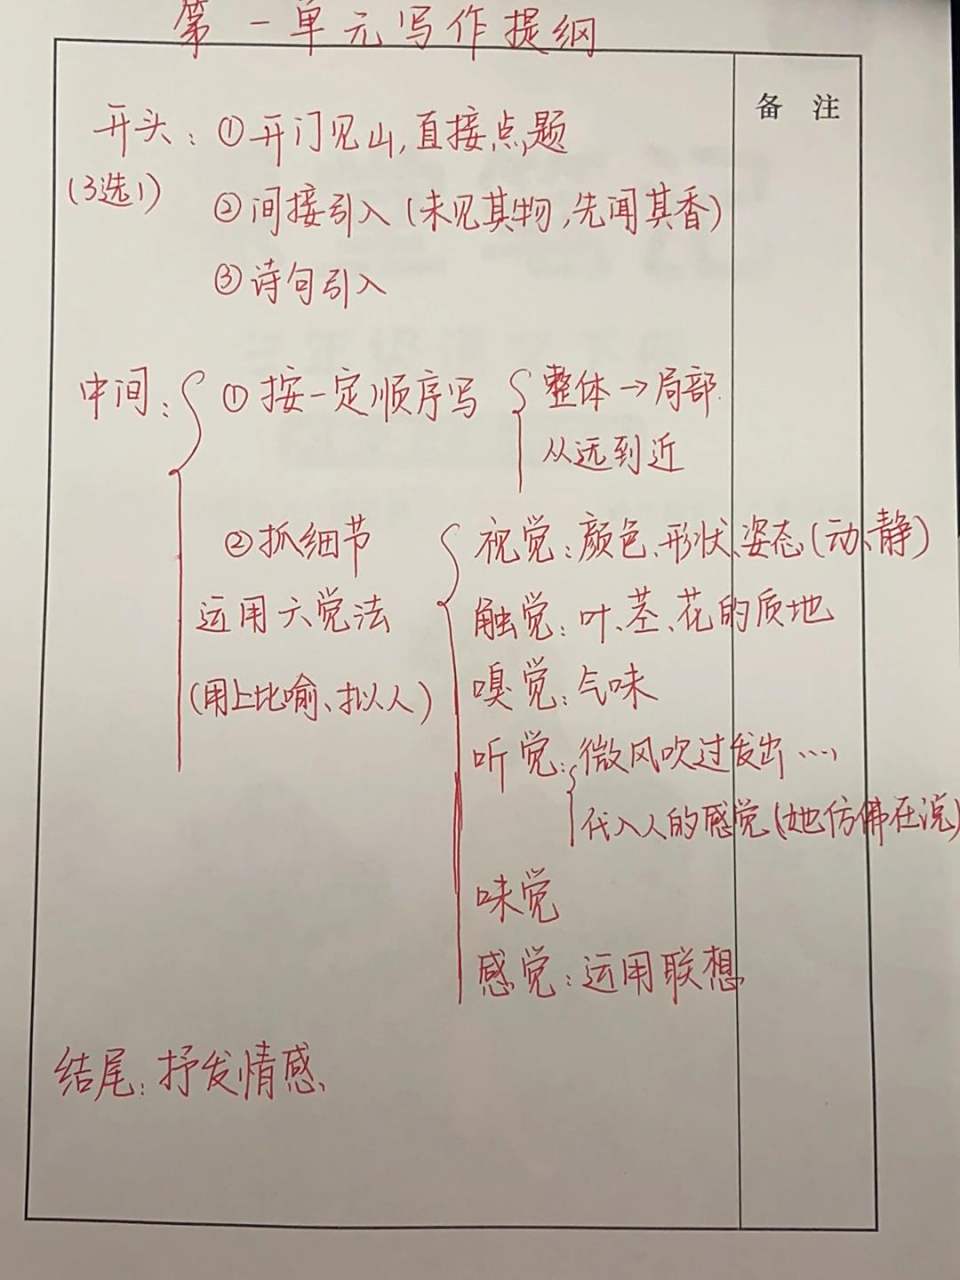 第一单元写作提纲
备 注
开头：①开门见山,直接点题
(3选1)
②间接引入(未见其物,先闻其香)
③诗句引入
中间：①按一定顺序写 整体→局部
从远到近
②抓细节
运用六觉法
(用上比喻、拟人)
视觉：颜色、形状、姿态(动、静)
触觉：叶、茎、花的质地
嗅觉：气味
听觉：微风吹过发出……
代入人的感觉(她仿佛在说)
味觉
感觉：运用联想
结尾：抒发情感